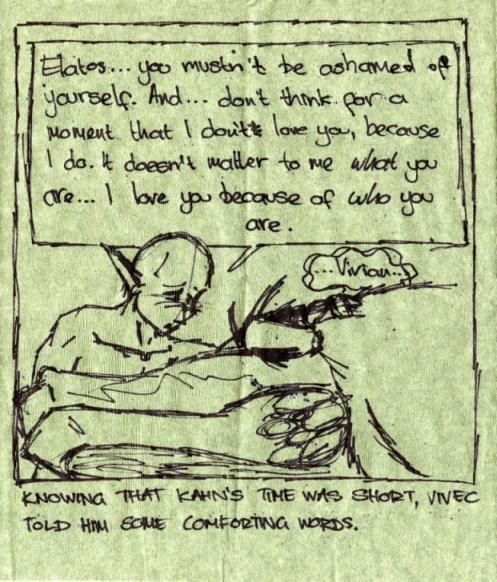 Elatos... you mustn't be ashamed of
yourself. And... don't think for a
moment that I don't love you, because
I do. It doesn't matter to me what you
are... I love you because of who you
are.
...Vivian...
KNOWING THAT KAHN'S TIME WAS SHORT, VIVEC
TOLD HIM SOME COMFORTING WORDS.